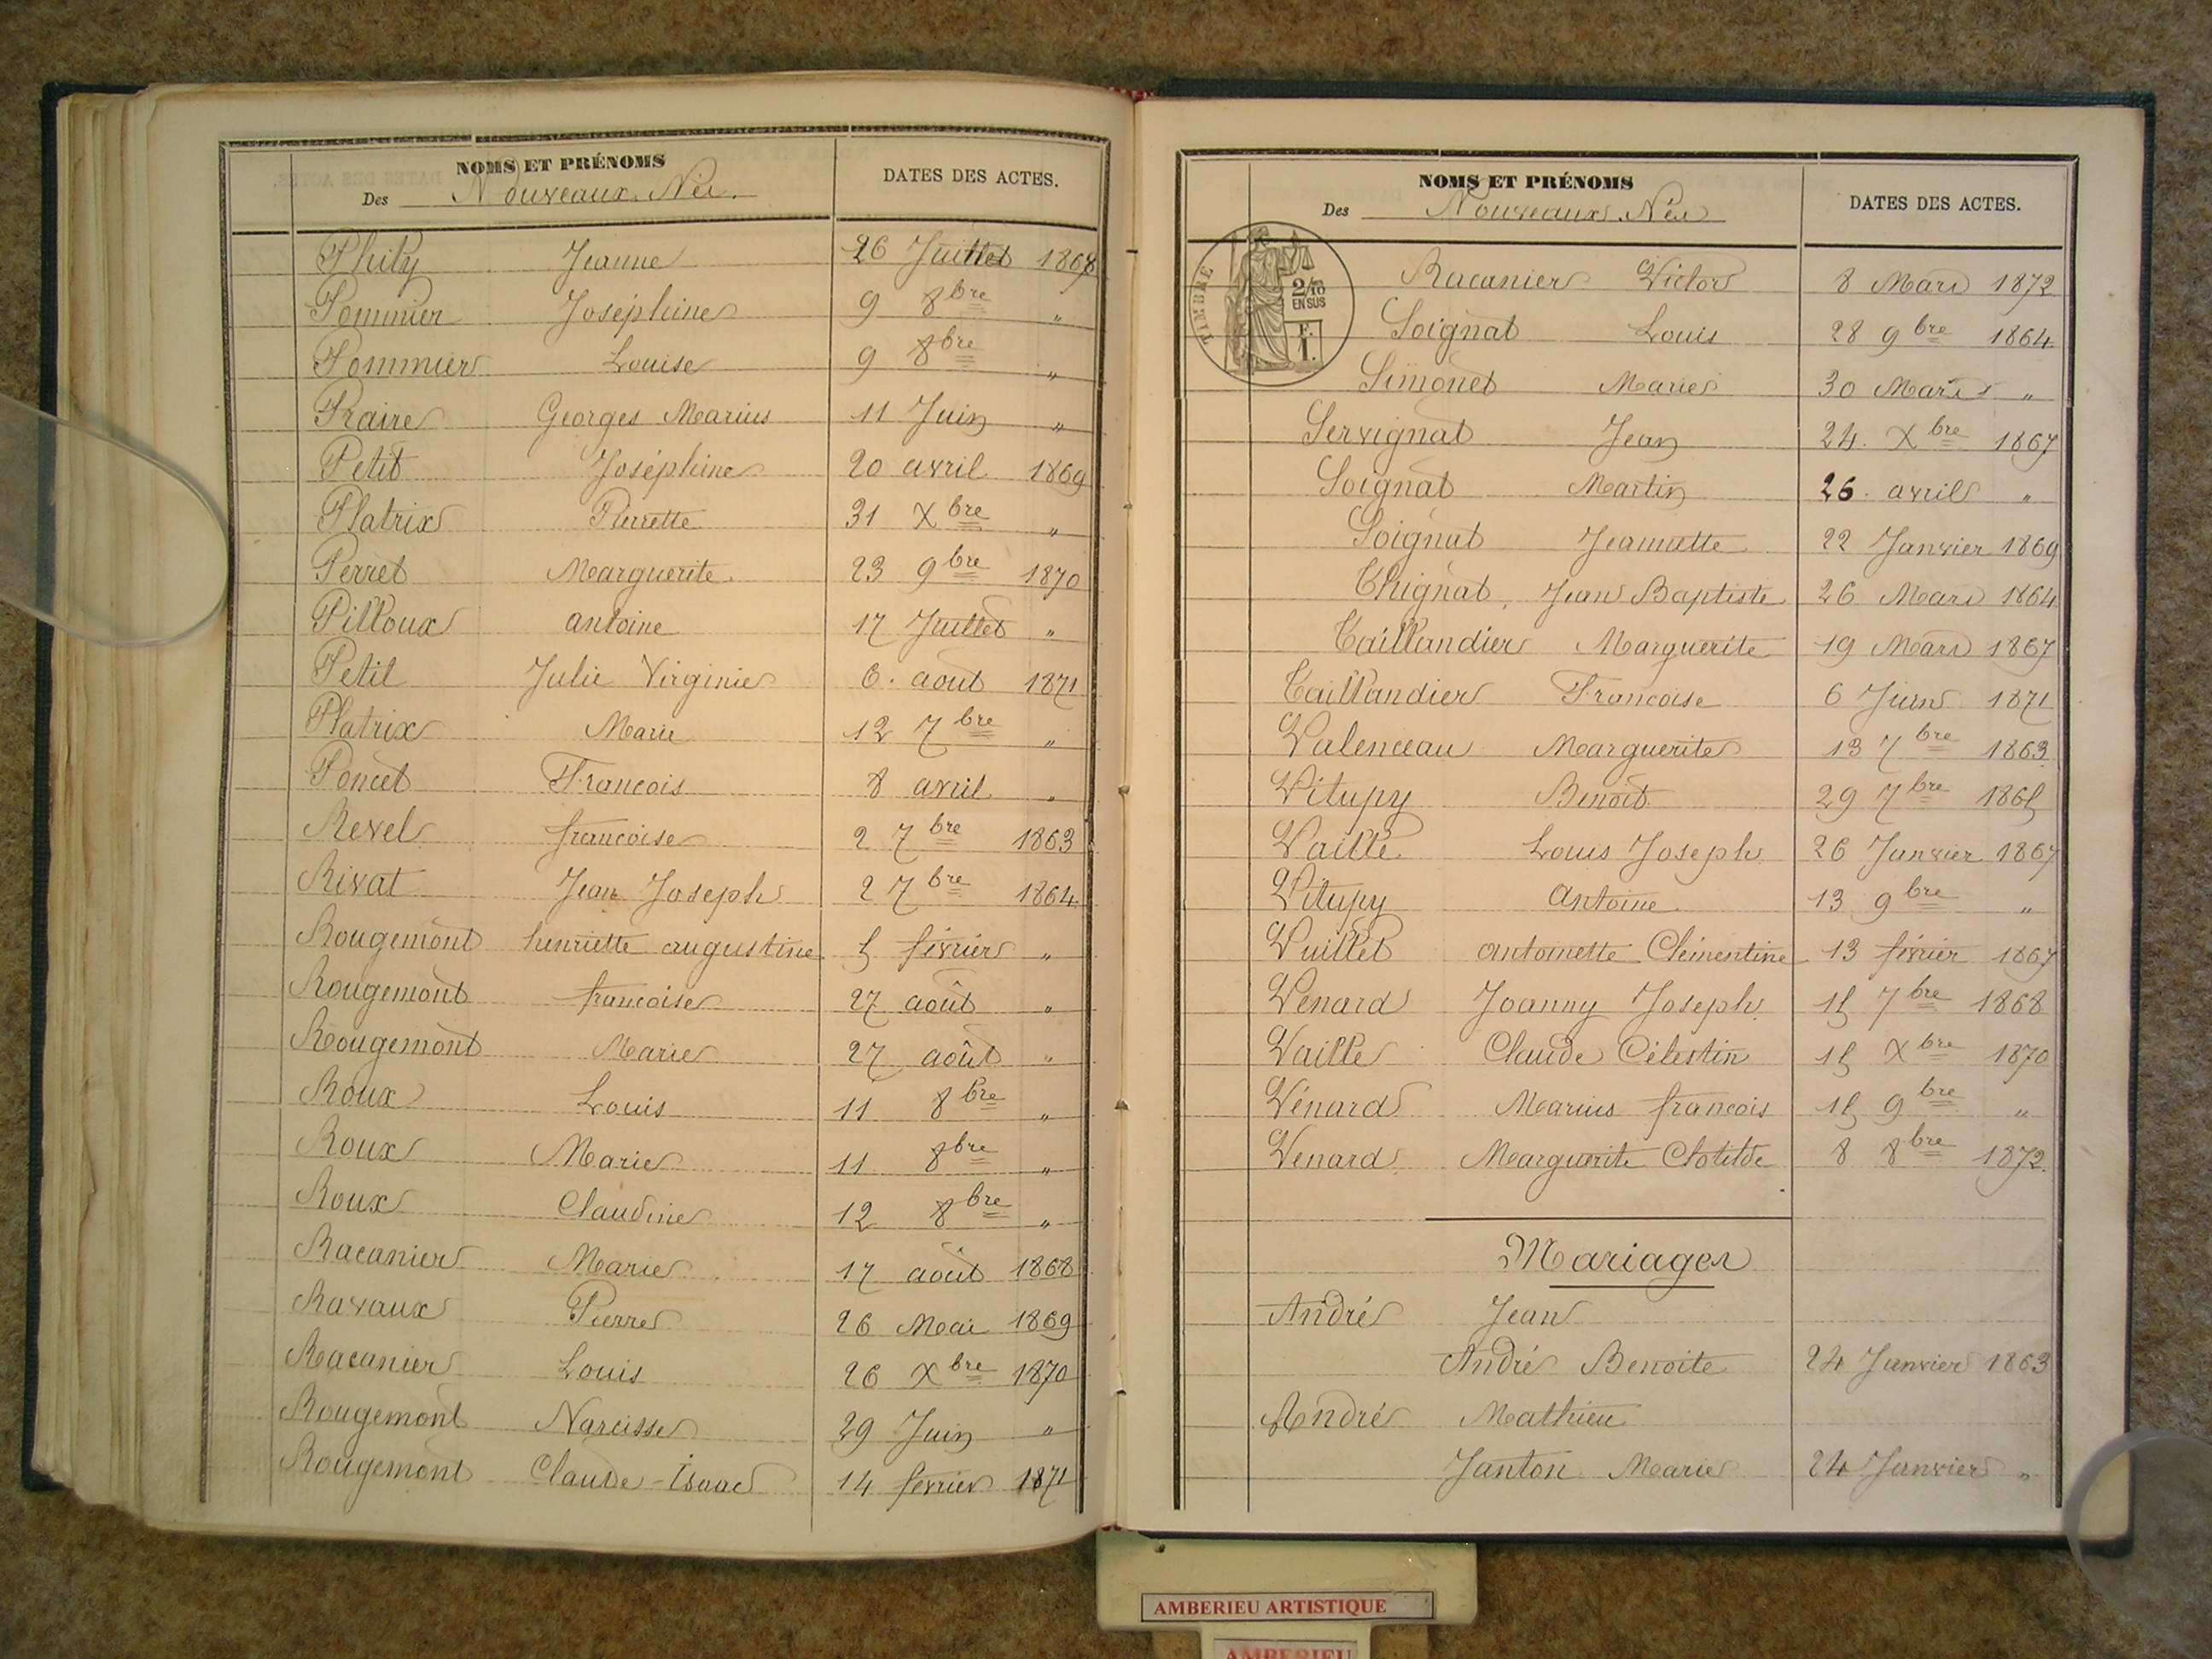 NOMS ET PRÉNOMS
Des Nouveaux-Nés.
DATES DES ACTES.
Phily Jeanne 26 Juillet 1868
Pommier Joséphine 9 8bre "
Pommier Louise 9 8bre "
Praire Georges Marius 11 Juin "
Petit Joséphine 20 avril 1869
Platrix Pierrette 31 Xbre "
Perret Marguerite 23 9bre 1870
Pilloux antoine 17 Juillet "
Petit Julie Virginie 6 août 1871
Platrix Marie 12 7bre "
Poncet Francois 8 avril "
Revel francoise 2 7bre 1863
Rivat Jean Joseph 2 7bre 1864
Rougemont henriette augustine 5 février "
Rougemont francoise 27 août "
Rougemont Marie 27 août "
Roux Louis 11 8bre "
Roux Marie 11 8bre "
Roux Claudine 12 8bre "
Racanier Marie 17 août 1868
Ravaux Pierre 26 Mai 1869
Racanier Louis 26 Xbre 1870
Rougemont Narcisse 29 Juin "
Rougemont Claude-Isaac 14 fevrier 1871
NOMS ET PRÉNOMS
Des Nouveaux-Nés
DATES DES ACTES.
TIMBRE
2/10
EN SUS
F.
1.
Racanier Victor 8 Mars 1872
Soignat Louis 28 9bre 1864
Simonet Marie 30 Mars "
Servignat Jean 24 Xbre 1867
Soignat Martin 26 avril "
Soignat Jeannette 22 Janvier 1869
Thignat Jean Baptiste 26 Mars 1864
Taillandier Marguerite 19 Mars 1867
Taillandier Francoise 6 Juin 1871
Valenceau Marguerite 13 7bre 1863
Vitupy Benoit 29 7bre 1865
Vaille Louis Joseph 26 Janvier 1867
Vitupy Antoine 13 9bre "
Vuillet Antoinette Clémentine 13 février 1867
Venard Joanny Joseph 15 7bre 1868
Vaille Claude Célestin 15 Xbre 1870
Vénard Marius francois 15 9bre "
Venard Marguerite Clotilde 8 8bre 1872
Mariages
André Jean
André Benoite 24 Janvier 1863
André Mathieu
Janton Marie 24 Janvier "
AMBERIEU ARTISTIQUE
AMBERIEU